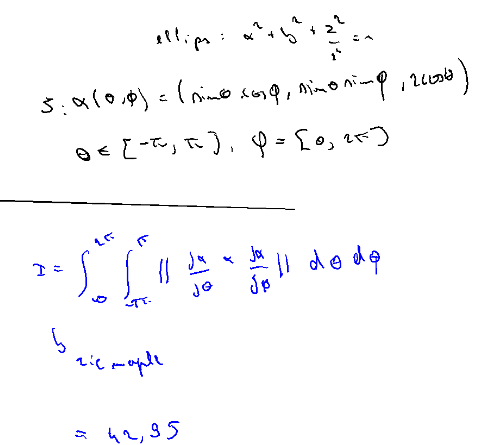 ellips: x² + y² + z²/2² = 1
S: α(θ,φ) = (sinθ cosφ, sinθ sinφ, 2cosθ)
θ ∈ [-π, π], φ = [0, 2π]
I = ∫₀^{2π} ∫_{-π}^{π} || ∂α/∂θ × ∂α/∂φ || dθ dφ
↳ zie maple
= 42,95